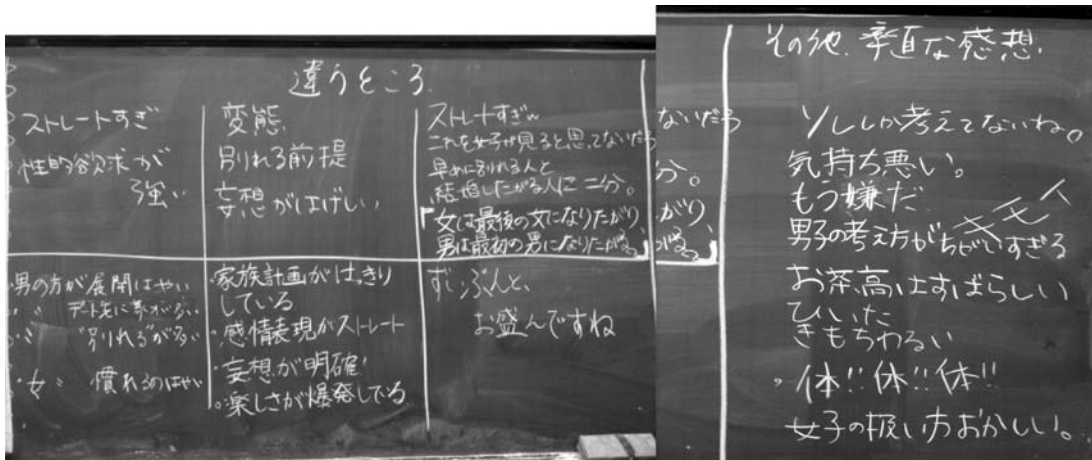 違うところ.
ストレートすぎ
性的欲求が
強い
変態
別れる前提
妄想がはげしい
ストレートすぎw
これを女子が見ると思ってないだろ
早めに別れる人と
結婚したがる人に二分。
「女は最後の女になりたがり、
男は最初の男になりたがる。」
・男の方が展開はやい
〃 〃 デート先に家が多い
〃 "別れる"が多い
・女〃 慣れるのはやい
・家族計画がはっきり
している
・感情表現がストレート
・妄想が明確!
・楽しさが爆発している
ずいぶんと、
お盛んですね
ないだろ
分。
がり、
がる。」
その他.率直な感想.
ソレしか考えてないね。
気持ち悪い。
もう嫌だ
キモイ
男子の考え方がちがいすぎる
お茶高はすばらしい
ひいた
きもちわるい
・体!!体!!体!!
女子の扱い方おかしい。